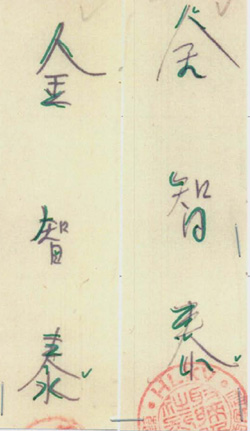 金智泰
金智泰